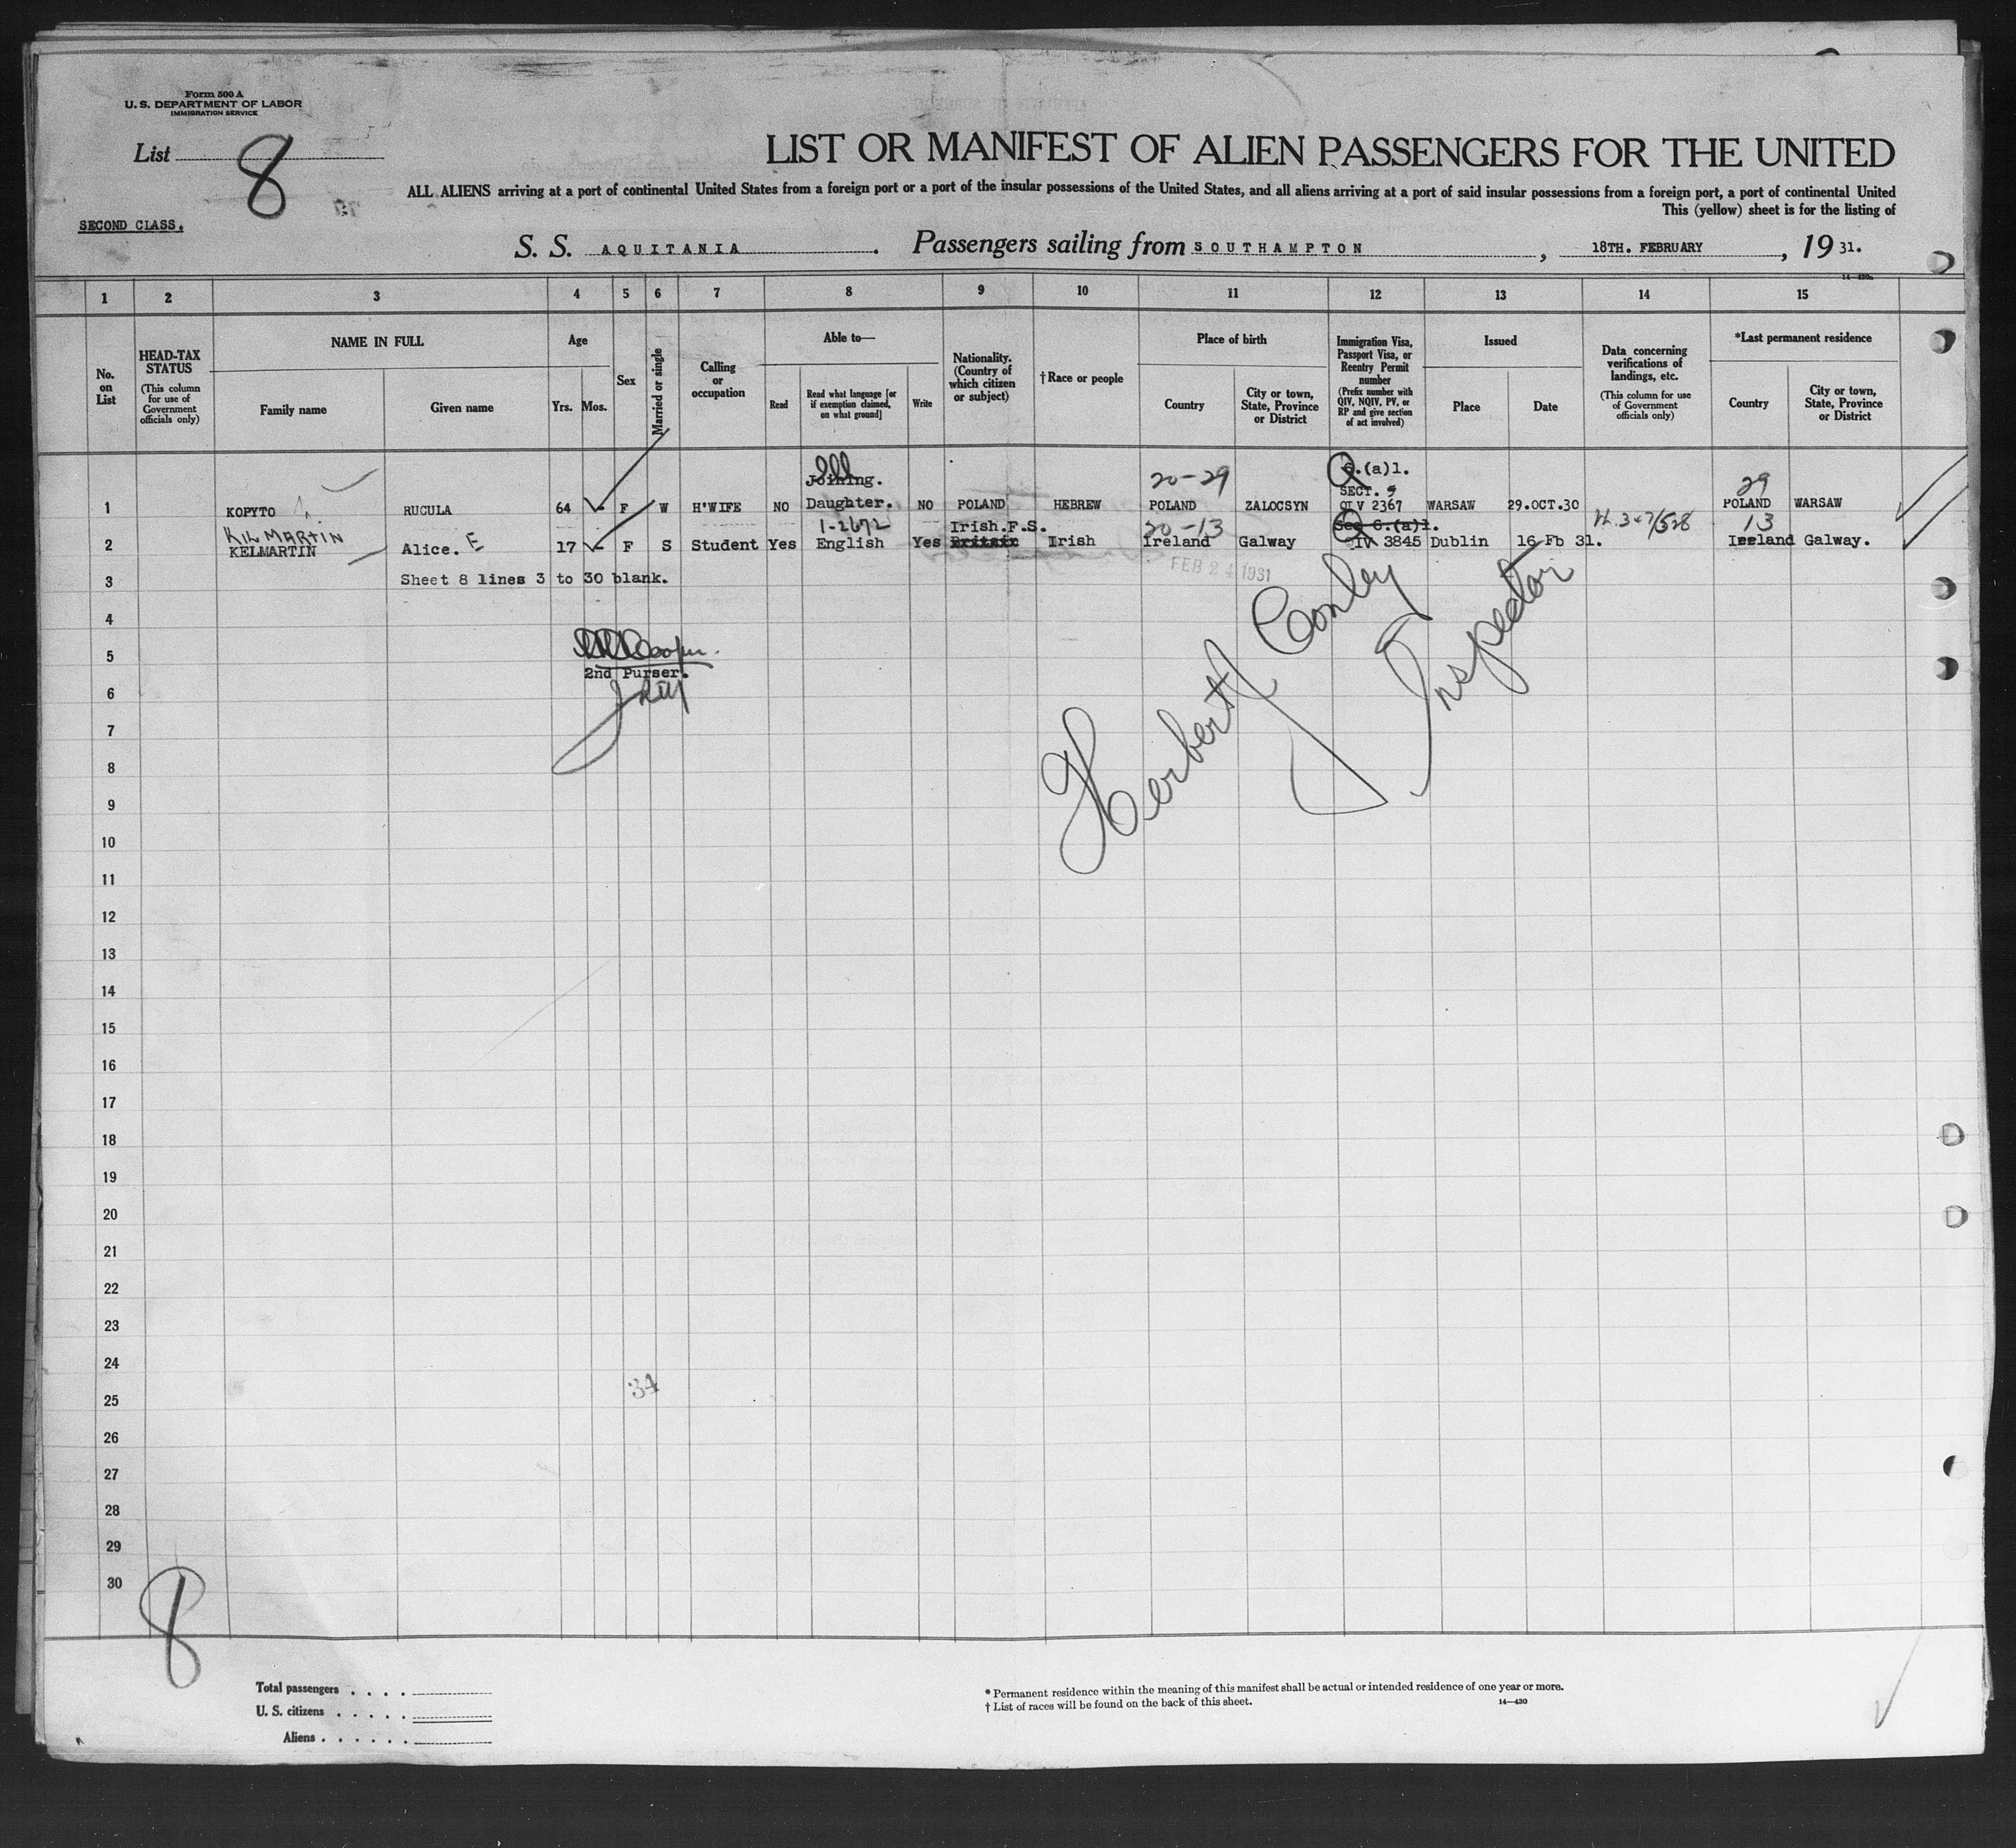 Form 500 A
U. S. DEPARTMENT OF LABOR
IMMIGRATION SERVICE
List 8
LIST OR MANIFEST OF ALIEN PASSENGERS FOR THE UNITED
ALL ALIENS arriving at a port of continental United States from a foreign port or a port of the insular possessions of the United States, and all aliens arriving at a port of said insular possessions from a foreign port, a port of continental United
This (yellow) sheet is for the listing of
SECOND CLASS.
S. S. AQUITANIA. Passengers sailing from SOUTHAMPTON, 18TH. FEBRUARY, 19 31.
1 2 3 4 5 6 7 8 9 10 11 12 13 14 15
No. on List
HEAD-TAX STATUS
(This column for use of Government officials only)
NAME IN FULL
Family name
Given name
Age
Yrs. Mos.
Sex
Married or single
Calling or occupation
Able to—
Read
Read what language [or if exemption claimed, on what ground]
Write
Nationality. (Country of which citizen or subject)
† Race or people
Place of birth
Country
City or town, State, Province or District
Immigration Visa, Passport Visa, or Reentry Permit number
(Prefix number with QIV, NQIV, PV, or RP and give section of act involved)
Issued
Place
Date
Data concerning verifications of landings, etc.
(This column for use of Government officials only)
*Last permanent residence
Country
City or town, State, Province or District
Joining. 20-29 6.(a)1. 29
SECT.
1 KOPYTO RUCULA 64 F W H'WIFE NO Daughter. NO POLAND HEBREW POLAND ZALOCSYN QIV 2367 WARSAW 29.OCT.30 POLAND WARSAW
KILMARTIN 1-2672 Irish.F.S. 20-13 Sec 6.(a)1. 13
2 KELMARTIN Alice. E 17 F S Student Yes English Yes Britain Irish Ireland Galway QIV 3845 Dublin 16 Fb 31. Ireland Galway.
FEB 24 1931
3 Sheet 8 lines 3 to 30 blank.
4
5
2nd Purser.
6
Herbert J Conley
Inspector
7
8
9
10
11
12
13
14
15
16
17
18
19
20
21
22
23
24
34
25
26
27
28
29
30
8
Total passengers . . . .
U. S. citizens . . . . .
Aliens . . . . . .
* Permanent residence within the meaning of this manifest shall be actual or intended residence of one year or more.
† List of races will be found on the back of this sheet.
14—430